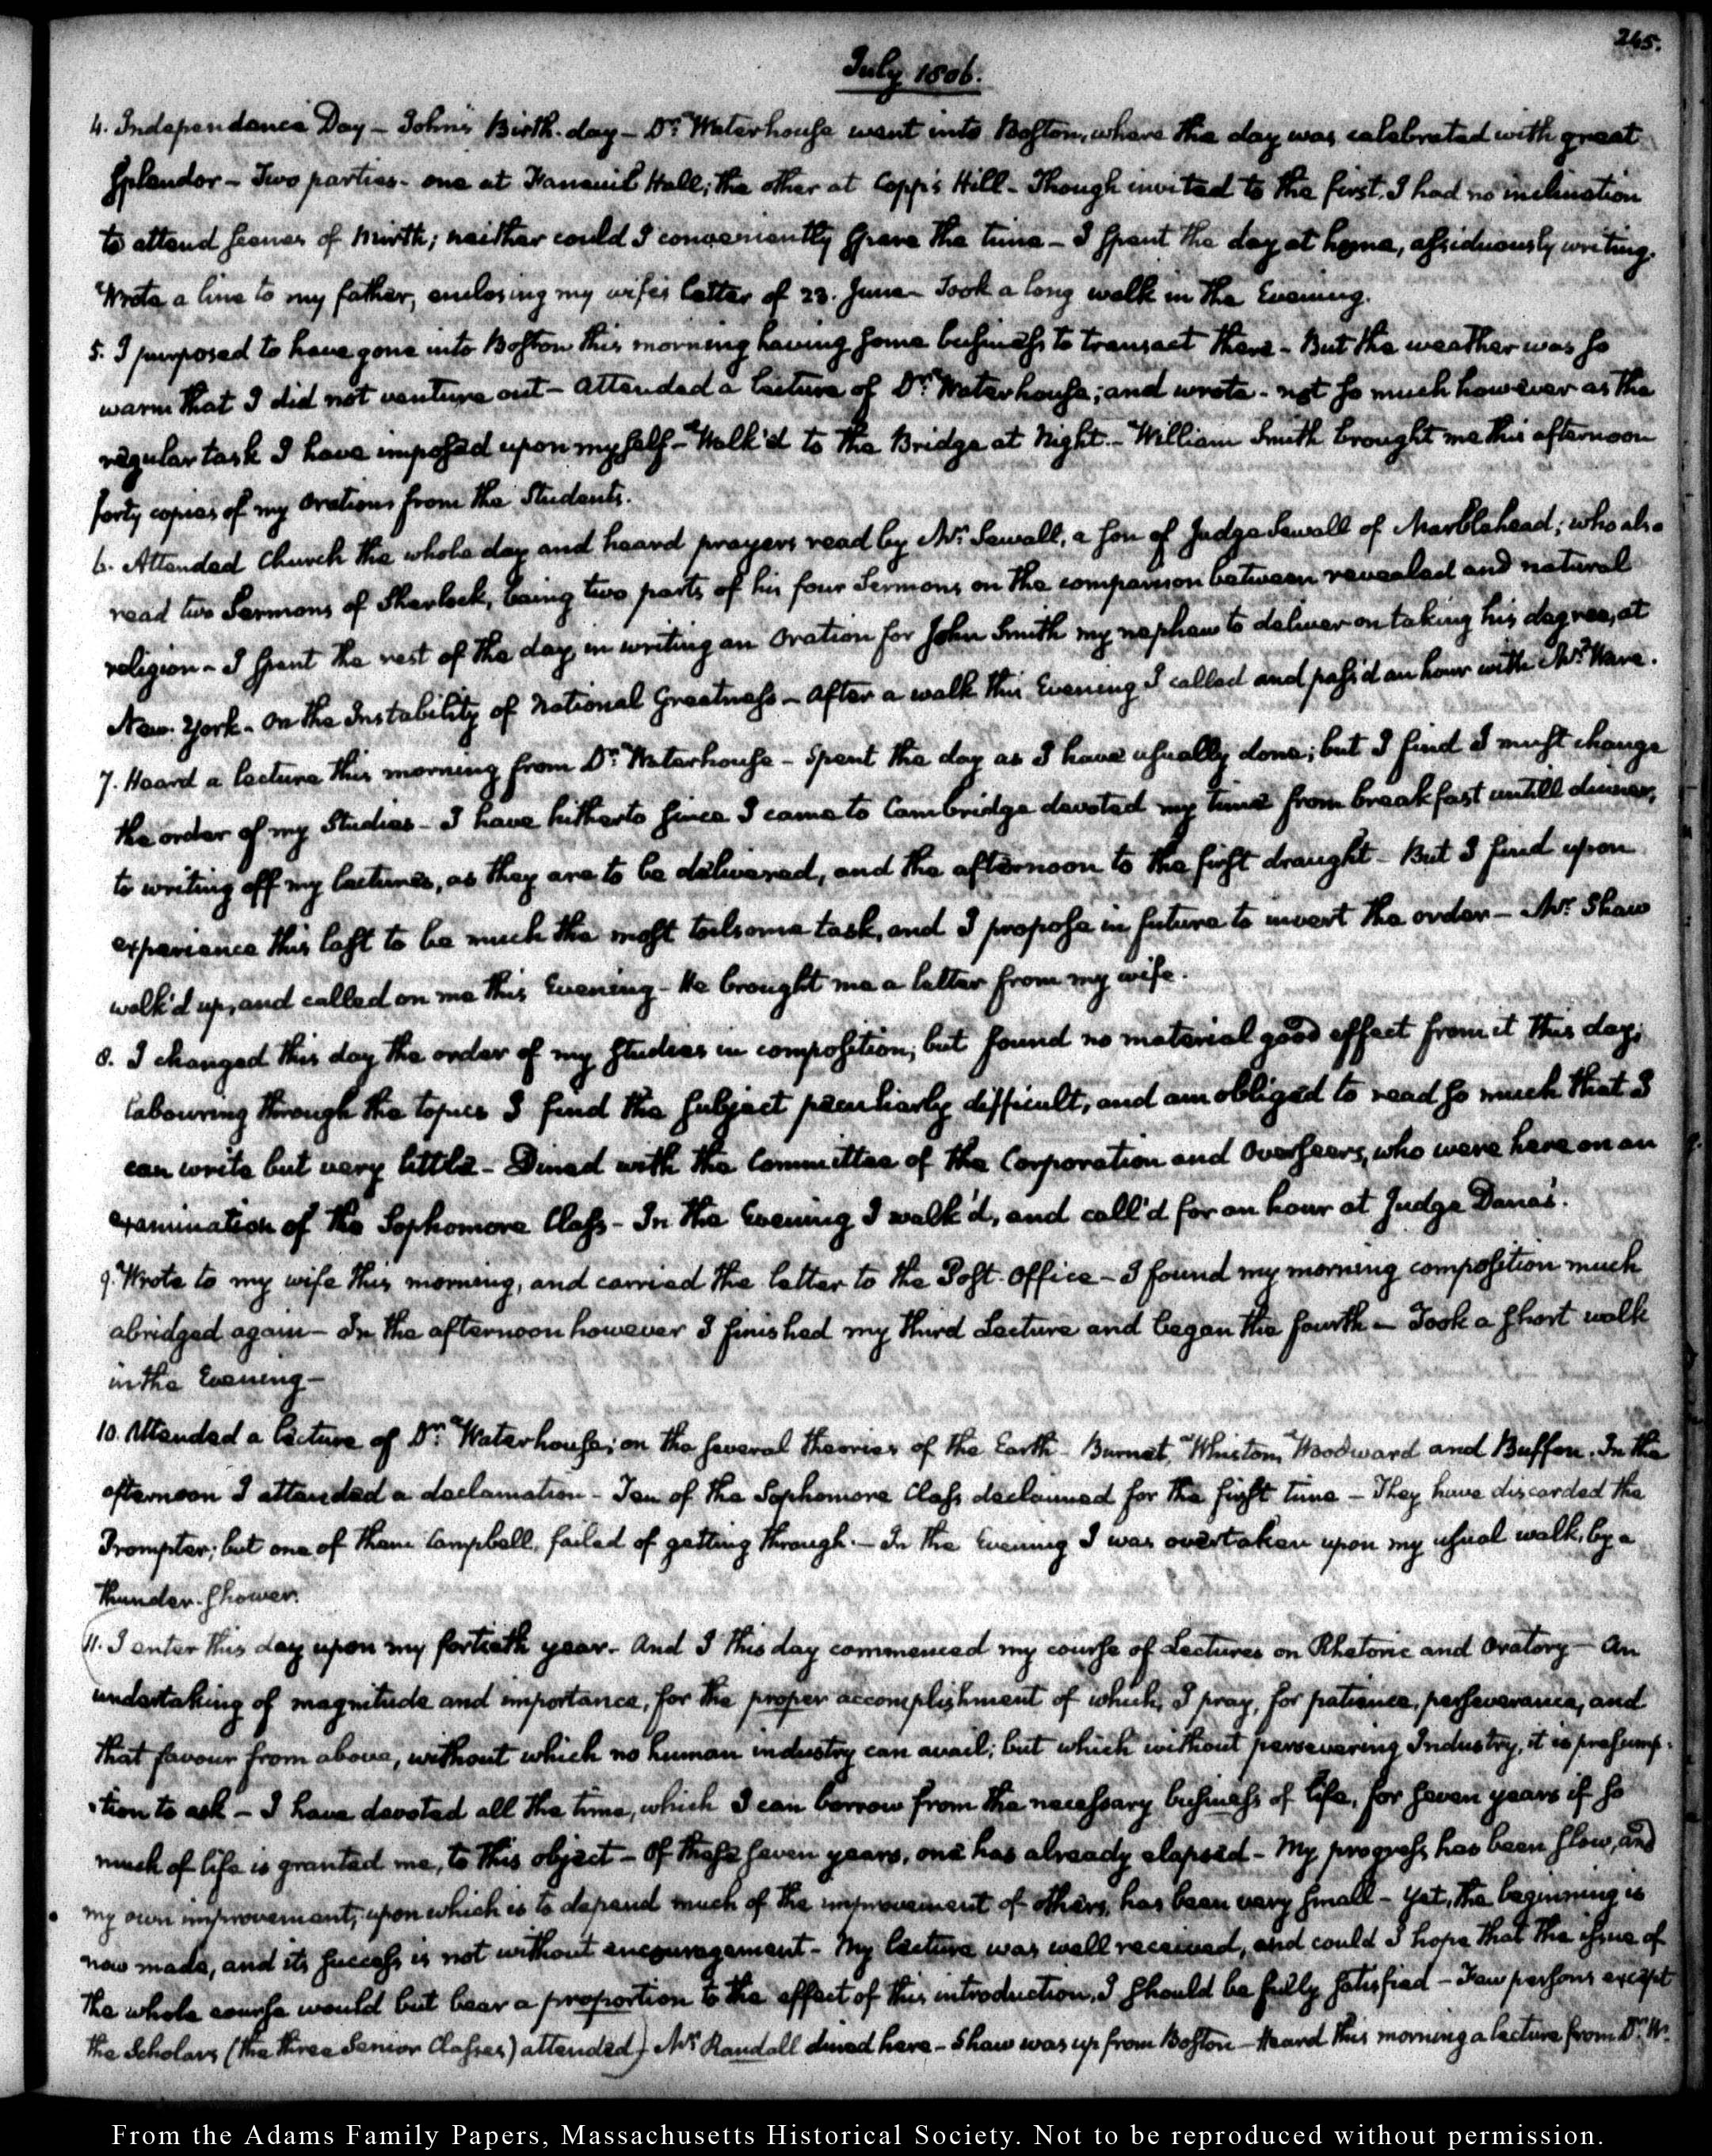 265.
July 1806.
4. Independance Day – John's Birth-day – Dr. Waterhouse went into Boston, where the day was celebrated with great
splendor – Two parties – one at Faneuil Hall; the other at Copp's Hill – Though invited to the first, I had no inclination
to attend scenes of mirth; neither could I conveniently spare the time – I spent the day at home, assiduously writing.
Wrote a line to my father, enclosing my wife's letter of 23. June – Took a long walk in the Evening.
5. I purposed to have gone into Boston this morning having some business to transact there – But the weather was so
warm that I did not venture out – Attended a lecture of Dr. Waterhouse; and wrote – not so much however as the
regular task I have imposed upon myself – Walk'd to the Bridge at Night. – William Smith brought me this afternoon
forty copies of my Orations from the Students.
6. Attended Church the whole day and heard prayers read by Mr. Sewall, a son of Judge Sewall of Marblehead; who also
read two Sermons of Sherlock, being two parts of his four Sermons on the comparison between revealed and natural
religion – I spent the rest of the day in writing an Oration for John Smith my nephew to deliver on taking his degree, at
New-York – On the Instability of National Greatness – After a walk this Evening I called and pass'd an hour with Mr. Ware.
7. Heard a lecture this morning from Dr. Waterhouse – Spent the day as I have usually done; but I find I must change
the order of my Studies – I have hitherto since I came to Cambridge devoted my time from breakfast untill dinner,
to writing off my lectures, as they are to be delivered, and the afternoon to the first draught – But I find upon
experience this last to be much the most toilsome task, and I propose in future to invert the order – Mr. Shaw
walk'd up, and called on me this Evening – He brought me a letter from my wife.
8. I changed this day the order of my studies in composition; but found no material good effect from it this day;
labouring through the topics I find the subject peculiarly difficult, and am obliged to read so much that I
can write but very little – Dined with the Committee of the Corporation and Overseers, who were here on an
examination of the Sophomore Class – In the Evening I walk'd, and call'd for an hour at Judge Dana's.
9. Wrote to my wife this morning, and carried the letter to the Post-Office – I found my morning composition much
abridged again – In the afternoon however I finished my third Lecture and began the fourth – Took a short walk
in the Evening –
10. Attended a lecture of Dr. Waterhouse; on the several theories of the Earth – Burnet, Whiston, Woodward and Buffon. In the
afternoon I attended a declamation – Ten of the Sophomore Class declaimed for the first time – They have discarded the
Prompter; but one of them Campbell, failed of getting through. – In the Evening I was overtaken upon my usual walk, by a
thunder-shower.
11. I enter this day upon my fortieth year – And I this day commenced my course of Lectures on Rhetoric and Oratory – An
undertaking of magnitude and importance, for the proper accomplishment of which, I pray, for patience, perseverance, and
that favour from above, without which no human industry can avail; but which without persevering Industry, it is presump-
-tion to ask – I have devoted all the time, which I can borrow from the necessary business of life, for seven years if so
much of life is granted me, to this object – Of these seven years, one has already elapsed – My progress has been slow, and
my own improvement, upon which is to depend much of the improvement of others, has been very small – Yet, the beginning is
now made, and its success is not without encouragement – My lecture was well received, and could I hope that the issue of
the whole course would but bear a proportion to the effect of this introduction, I should be fully satisfied – Few persons except
the Scholars (the three Senior Classes) attended) Mr. Randall dined here – Shaw was up from Boston – Heard this morning a lecture from Dr. W.
From the Adams Family Papers, Massachusetts Historical Society. Not to be reproduced without permission.